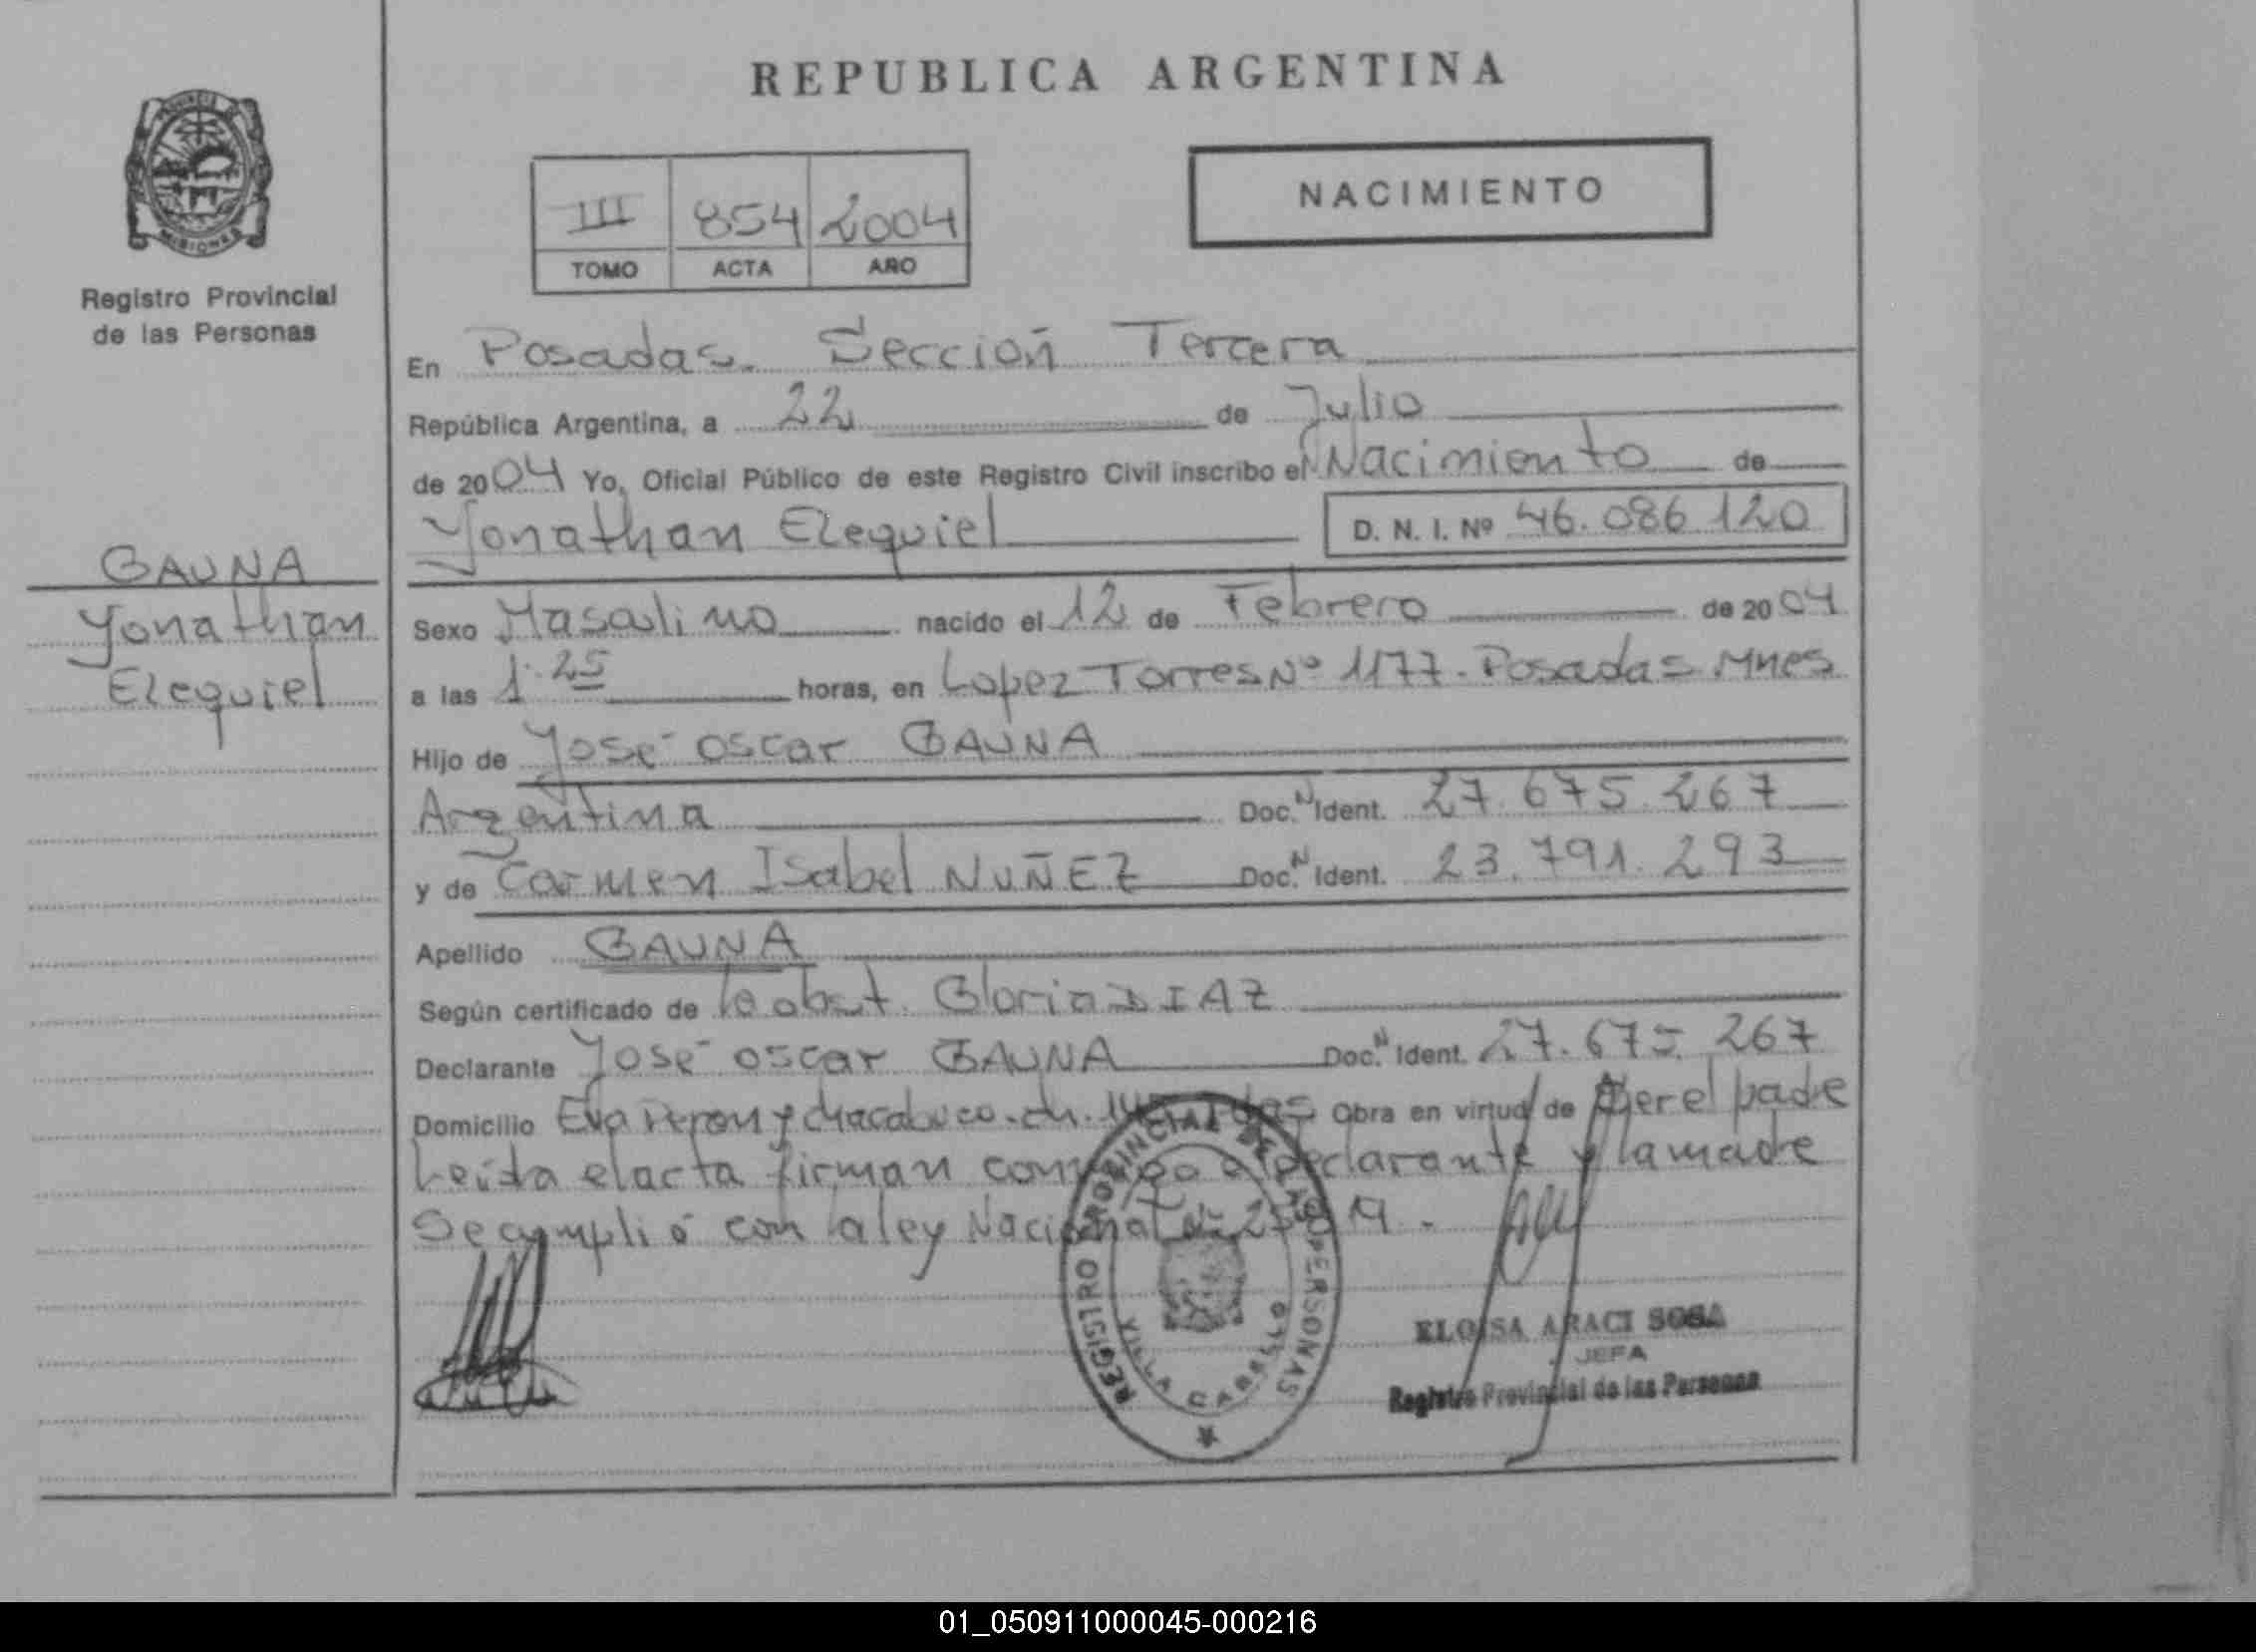 REPUBLICA ARGENTINA
PROVINCIA
MISIONES
Registro Provincial
de las Personas
III 854 2004
TOMO ACTA AÑO
NACIMIENTO
En Posadas. Sección Tercera
República Argentina, a 22 de Julio
de 2004 Yo, Oficial Público de este Registro Civil inscribo el Nacimiento de
Yonathan Ezequiel D. N. I. Nº 46.086 120
GAUNA
Yonathan
Ezequiel
Sexo Masculino nacido el 12 de Febrero de 2004
a las 1.25 horas, en Lopez Torres Nº 1177. Posadas Mnes
Hijo de Yosé Oscar GAUNA
Argentina Doc. N Ident. 27.675.267
y de Carmen Isabel NUÑEZ Doc. N Ident. 23.791.293
Apellido GAUNA
Según certificado de la obst. Gloria DIAZ
Declarante Yosé Oscar GAUNA Doc. N Ident. 27.675.267
Domicilio Eva Peron y Chacabuco. ch. Obra en virtud de ser el padre
Leída el acta firman conmigo el declarante y la madre
Se cumplió con la ley Nacional
REGISTRO PROVINCIAL DE LAS PERSONAS
VILLA CABELLO
ELOISA ARACI SOSA
JEFA
Registro Provincial de las Personas
01_050911000045-000216